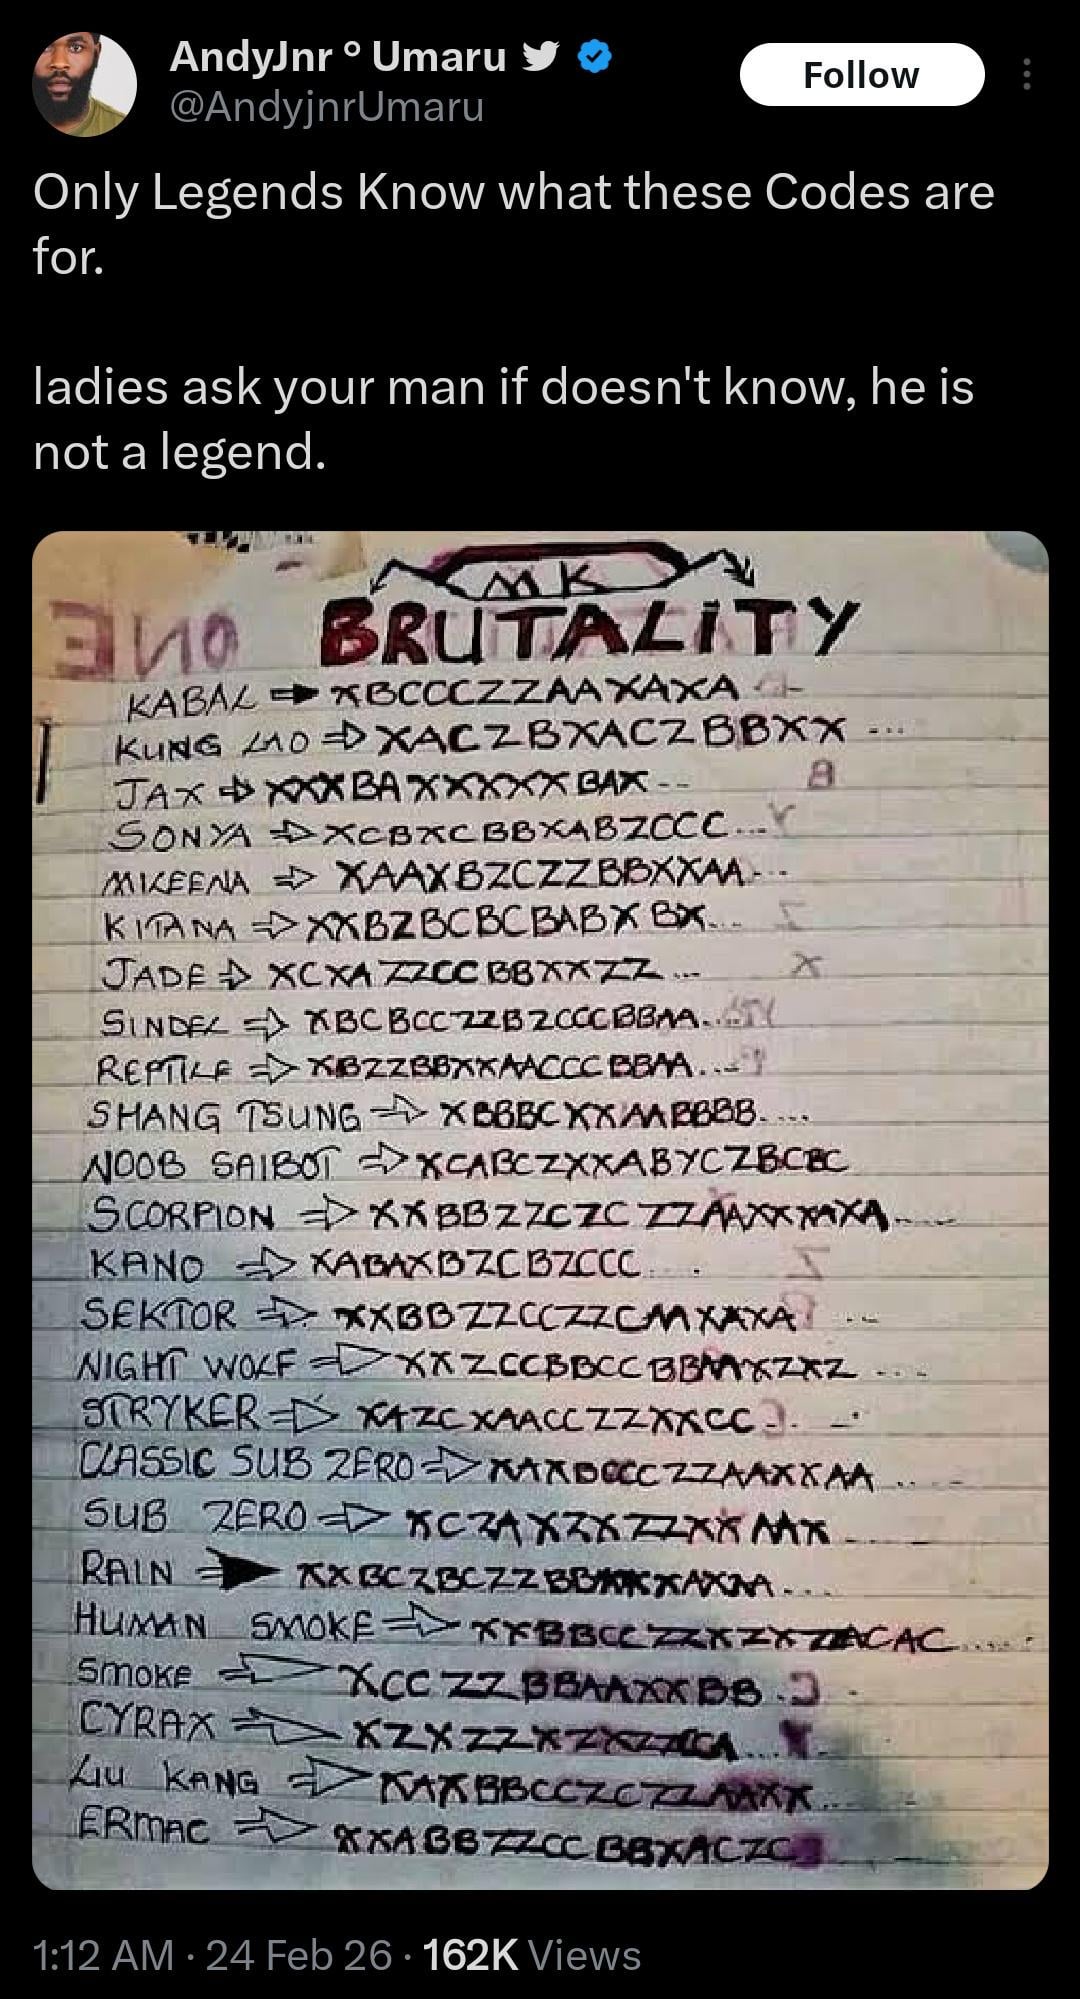 AndyJnr ° Umaru
@AndyjnrUmaru
Follow
Only Legends Know what these Codes are
for.
ladies ask your man if doesn't know, he is
not a legend.
MK
ONE
BRUTALITY
KABAL ⇒ XBCCCZZAAXAXA
KUNG LAO ⇒ XACZBXACZBBXX ...
JAX ⇒ XXXBAXXXXXBAX--
B
SONYA ⇒ XCBXCBBXABZCCC...
MILEENA ⇒ XAAXBZCZZBBXXAA...
KITANA ⇒ XXBZBCBCBABXBX...
JADE ⇒ XCXAZZCCBBXXZZ...
X
SINDEL ⇒ XBCBCCZZBZCCCBBAA..
REPTILE ⇒ XBZZBBXXAACCCBBAA...
SHANG TSUNG ⇒ XBBBCXXAABBBB....
NOOB SAIBOT ⇒ XCABCZXXABYCZBCBC
SCORPION ⇒ XXBBZZCZCZZAAXXXAXA.....
KANO ⇒ XABAXBZCBZCCC
SEKTOR ⇒ XXBBZZCCZZCAAXAXA
NIGHT WOLF ⇒ XXZCCBBCCBBAAXZXZ ...
STRYKER ⇒ XAZCXAACCZZXXCC
CLASSIC SUB ZERO ⇒ XAXBCCCZZAAXXAA
SUB ZERO ⇒ XCZAXZXZZXX
RAIN ⇒ XXBCZBCZZBB
HUMAN SMOKE ⇒ XXBBCCZZXZXZZACAC.....
SMOKE ⇒ XCCZZBBAAXXBB
CYRAX ⇒ XZXZZXZXZZ
LIU KANG ⇒ XAXBBCCZCZZAAXX...
ERMAC ⇒ XXABBZZCCBBXACZC
1:12 AM · 24 Feb 26 · 162K Views